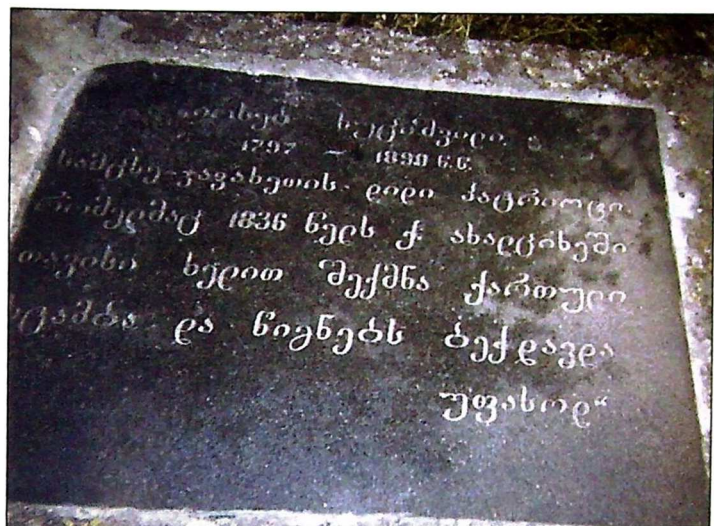 იოსებ ხუციშვილი
1797 — 18 წ.წ.
სამცხე-ჯავახეთის დიდი პატრიოტი
რომელმაც 1836 წელს ქ. ახალციხეში
თავისი ხელით შექმნა ქართული
სტამბა და წიგნებს ბეჭდავდა
უფასოდ“